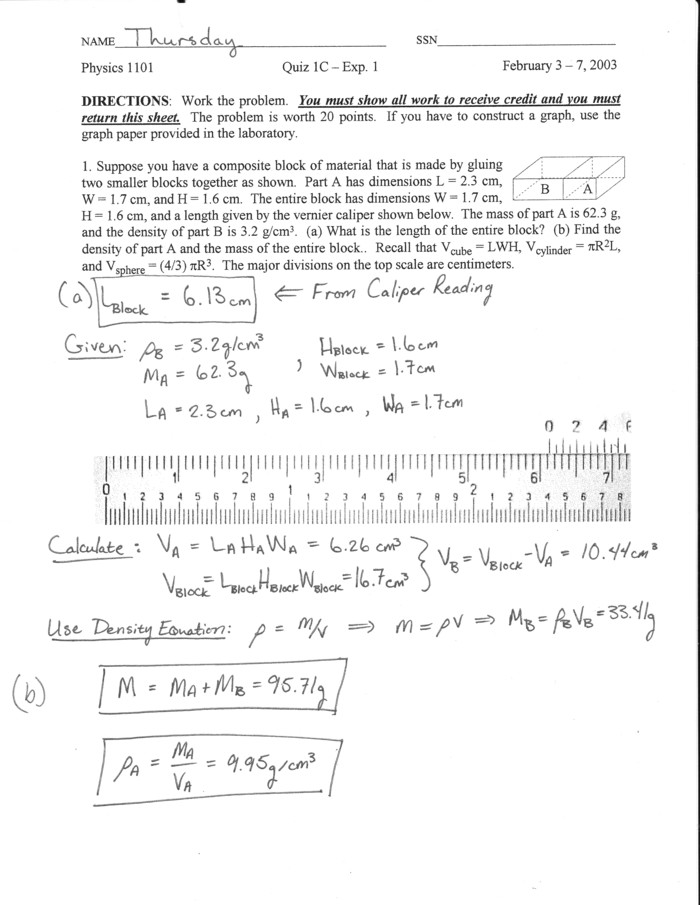 NAME Thursday SSN
Physics 1101 Quiz 1C – Exp. 1 February 3 – 7, 2003
DIRECTIONS: Work the problem. You must show all work to receive credit and you must
return this sheet. The problem is worth 20 points. If you have to construct a graph, use the
graph paper provided in the laboratory.
1. Suppose you have a composite block of material that is made by gluing
two smaller blocks together as shown. Part A has dimensions L = 2.3 cm,
W = 1.7 cm, and H = 1.6 cm. The entire block has dimensions W = 1.7 cm,
B A
H = 1.6 cm, and a length given by the vernier caliper shown below. The mass of part A is 62.3 g,
and the density of part B is 3.2 g/cm³. (a) What is the length of the entire block? (b) Find the
density of part A and the mass of the entire block.. Recall that Vcube = LWH, Vcylinder = πR²L,
and Vsphere = (4/3) πR³. The major divisions on the top scale are centimeters.
(a) LBlock = 6.13cm ⇐ From Caliper Reading
Given: ρB = 3.2g/cm³ , HBlock = 1.6cm
MA = 62.3g WBlock = 1.7cm
LA = 2.3cm , HA = 1.6cm , WA = 1.7cm
0 2 4
1 2 3 4 5 6 7
0 1 2 3 4 5 6 7 8 9 1 1 2 3 4 5 6 7 8 9 2 1 2 3 4 5 6 7 8
Calculate: VA = LAHAWA = 6.26 cm³ } VB = VBlock - VA = 10.44cm³
VBlock = LBlockHBlockWBlock = 16.7cm³
Use Density Equation: ρ = m/V ⇒ m = ρV ⇒ MB = ρBVB = 33.41g
(b) M = MA + MB = 95.71g
ρA = MA/VA = 9.95g/cm³